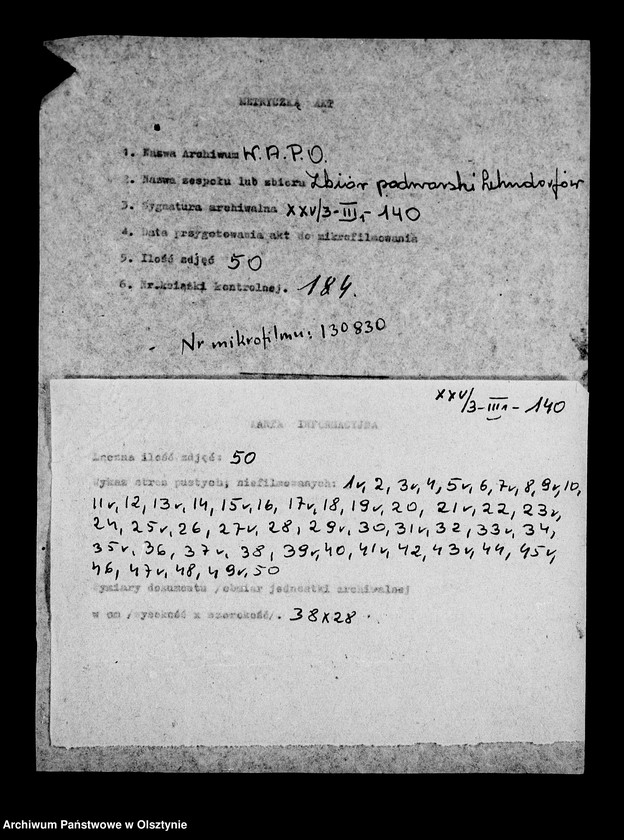 METRYCZKĄ AKT
1. Nazwa Archiwum W.A.P.O.
2. Nazwa zespołu lub zbioru Zbiór podworski Lehndorfów
3. Sygnatura archiwalna XXV/3-III1-140
4. Data przygotowania akt do mikrofilmowania
5. Ilość zdjęć 50
6. Nr.książki kontrolnej. 184.
Nr mikrofilmu: 130830
XXV/3-III1-140
KARTA INFORMACYJNA
Łączna ilość zdjęć: 50
Wykaz stron pustych, niefilmowanych: 1v, 2, 3v, 4, 5v, 6, 7v, 8, 9v, 10,
11v, 12, 13v, 14, 15v, 16, 17v, 18, 19v, 20, 21v, 22, 23v,
24, 25v, 26, 27v, 28, 29v, 30, 31v, 32, 33v, 34,
35v, 36, 37v, 38, 39v, 40, 41v, 42, 43v, 44, 45v,
46, 47v, 48, 49v, 50
Wymiary dokumentu /obmiar jednostki archiwalnej
w cm /wysokość x szerokość/. 38x28.
Archiwum Państwowe w Olsztynie